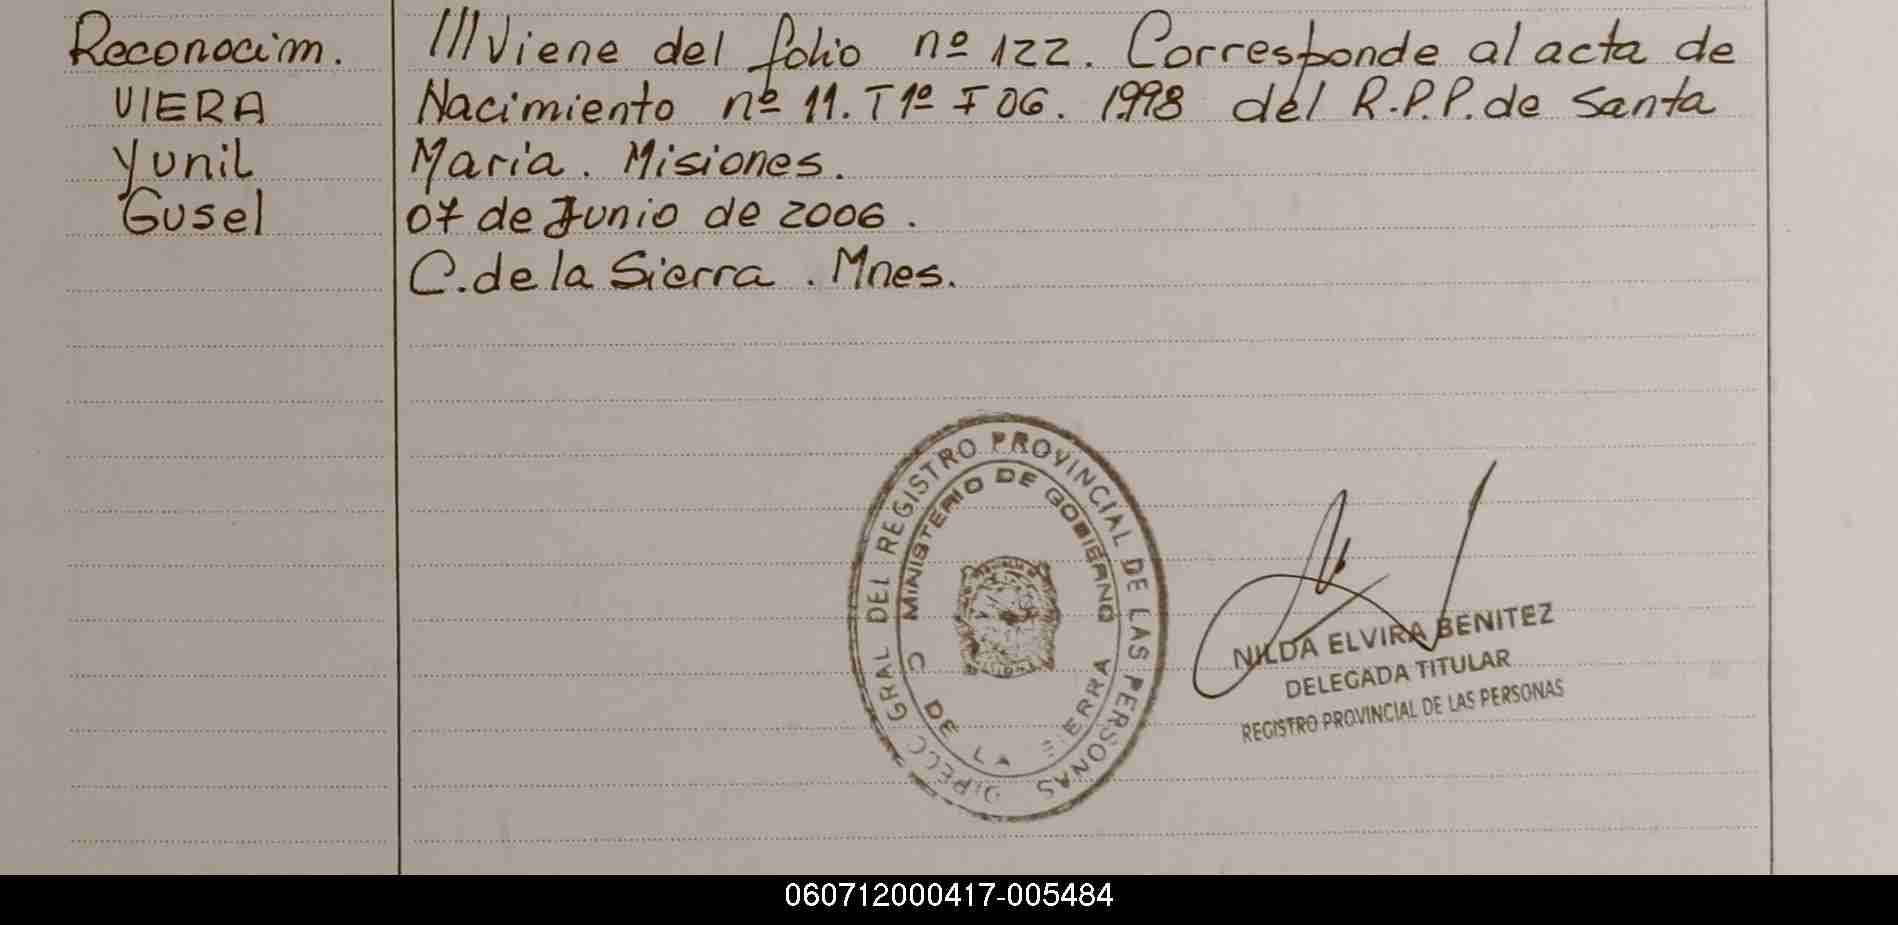 Reconocim.
VIERA
Yunil
Gusel
///Viene del folio nº 122. Corresponde al acta de
Nacimiento nº 11. T 1º F 06. 1998 del R.P.P. de Santa
Maria. Misiones.
07 de Junio de 2006.
C. de la Sierra. Mnes.
GRAL DEL REGISTRO PROVINCIAL DE LAS PERSONAS
MINISTERIO DE GOBIERNO
C DE LA SIERRA
NILDA ELVIRA BENITEZ
DELEGADA TITULAR
REGISTRO PROVINCIAL DE LAS PERSONAS
060712000417-005484